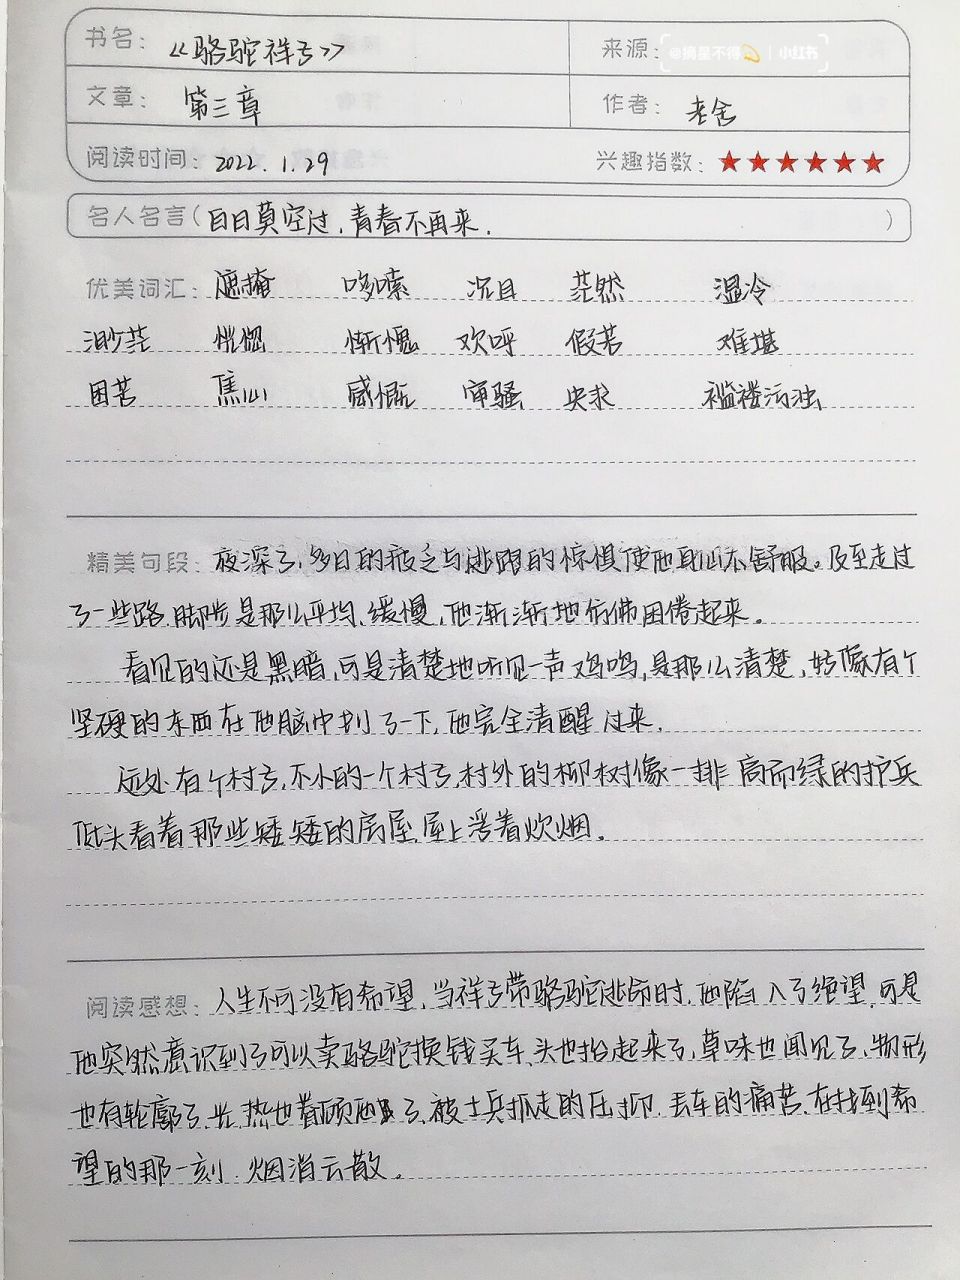 书名：《骆驼祥子》
来源：@摘星不得 | 小红书
文章：第三章
作者：老舍
阅读时间：2022.1.29
兴趣指数：★★★★★★
名人名言（白日莫空过，青春不再来。）
优美词汇：遮掩 哆嗦 沉目 茫然 湿冷
渺茫 恍惚 惭愧 欢呼 假若 难堪
困苦 焦心 感慨 审骚 央求 褴褛污浊
精美句段：夜深了，多日的疲乏与逃跑的惊惧使他身心不舒服。及至走过
了一些路，脚步是那么平均、缓慢，他渐渐地仿佛困倦起来。
看见的还是黑暗，可是清楚地听见一声鸡鸣，是那么清楚，好像有个
坚硬的东西在他脑中划了一下，他完全清醒过来。
远处有个村子，不小的一个村子，村外的柳树像一排高而绿的护兵
低头看着那些矮矮的房屋，屋上浮着炊烟。
阅读感想：人生不可没有希望，当祥子带骆驼逃命时，他陷入了绝望，可是
他突然意识到了可以卖骆驼换钱买车，头也抬起来了，草味也闻见了，物形
也有轮廓了，光、热也眷顾他了，被士兵抓走的压抑，丢车的痛苦，在找到希
望的那一刻，烟消云散。